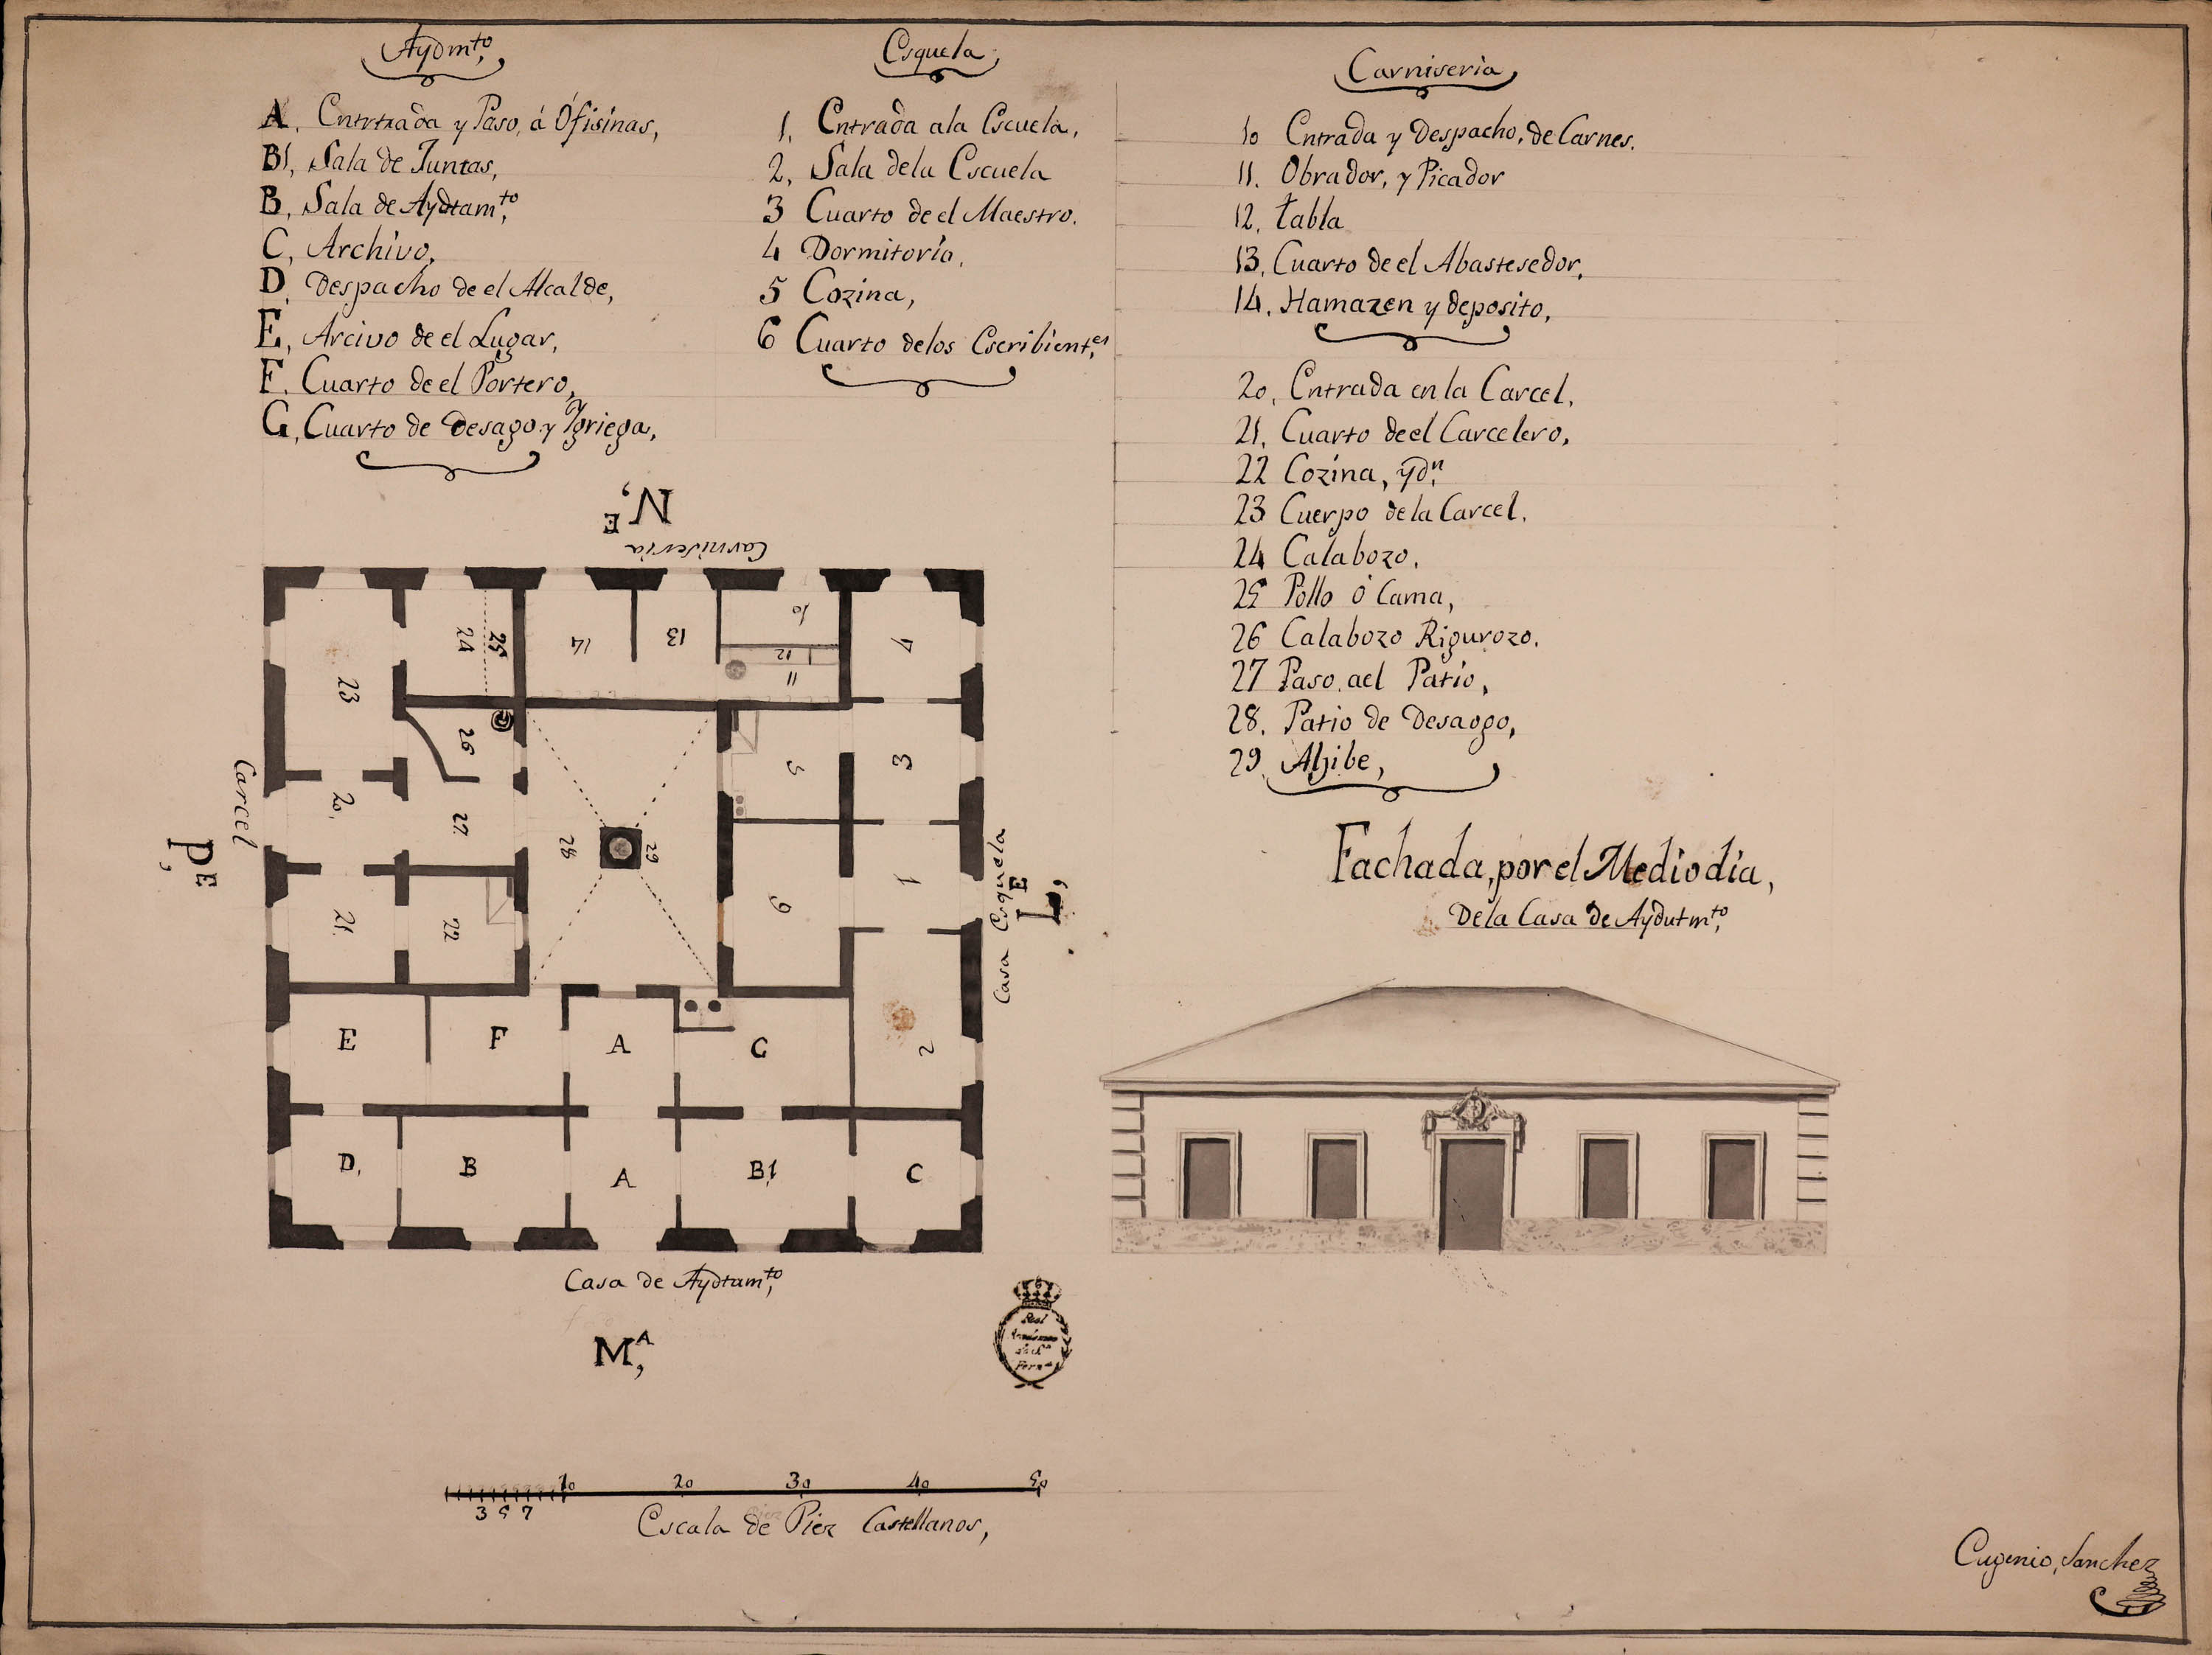 Aydmto,
A, Entrtrada y Paso, á Ófisinas,
B1, Sala de Juntas,
B, Sala de Aydtamto,
C, Archivo,
D, Despacho de el Alcalde,
E, Arcivo de el Lugar,
F, Cuarto de el Portero,
G, Cuarto de Desago y Ygriega,
Esquela,
1, Entrada ala Escuela,
2, Sala dela Escuela
3 Cuarto de el Maestro.
4 Dormitorio,
5 Cozina,
6 Cuarto delos Escribientes,
Carniseria,
10 Entrada y Despacho, de Carnes.
11. Obrador, y Picador
12, tabla
13, Cuarto de el Abastesedor,
14. Hamazen y deposito,
20, Entrada en la Carcel,
21, Cuarto de el Carcelero,
22 Cozina, ydn,
23 Cuerpo de la Carcel.
24 Calabozo.
25 Pollo ó Cama,
26 Calabozo Rigurozo.
27 Paso ael Patio,
28. Patio de Desaogo,
29, Aljibe,
NE,
Carniseria
24
25
14
13
10
12
11
4
23
26
5
3
20,
27
28
29
6
1
21.
22
2
Carcel
PE,
Casa Esquela
LE,
E
F
A
G
D,
B
A
B1,
C
Casa de Aydtamto,
MA,
Fachada, por el Mediodia,
De la Casa de Aydutmto,
Real
10 20 30 40 50
3 5 7
Escala de Piez Castellanos,
Eugenio, Sanchez